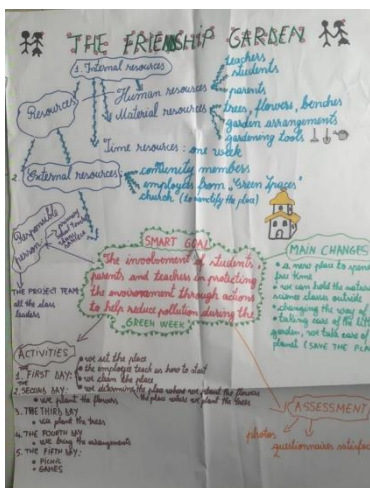 THE FRIENDSHIP GARDEN
1. Internal resources
Resources
Human resources
teachers
students
parents
Material resources
trees, flowers, benches
garden arrangements
gardening tools
Time resources: one week
2. External resources:
community members
employees from "Green Spaces"
church (to sanctify the place)
Responsible
person
SMART GOAL
The involvement of students
parents and teachers in protecting
the environment through actions
to help reduce pollution during the
GREEN WEEK
MAIN CHANGES
a new place to spend
free time
we can hold the
science classes outside
changing the way of
taking care of the
garden, we take care of
planet (SAVE THE
THE PROJECT TEAM:
all the class
leaders
ACTIVITIES
1. FIRST DAY:
we set the place
the employee teach us how to start
we clean the place
2. SECOND DAY:
we determine the place where we plant the flowers
the place where we plant the trees
we plant the flowers
3. THE THIRD DAY
we plant the trees
4. THE FOURTH DAY
we bring the arrangements
5. THE FIFTH DAY:
PICNIC
GAMES
ASSESSMENT
photos
questionnaires